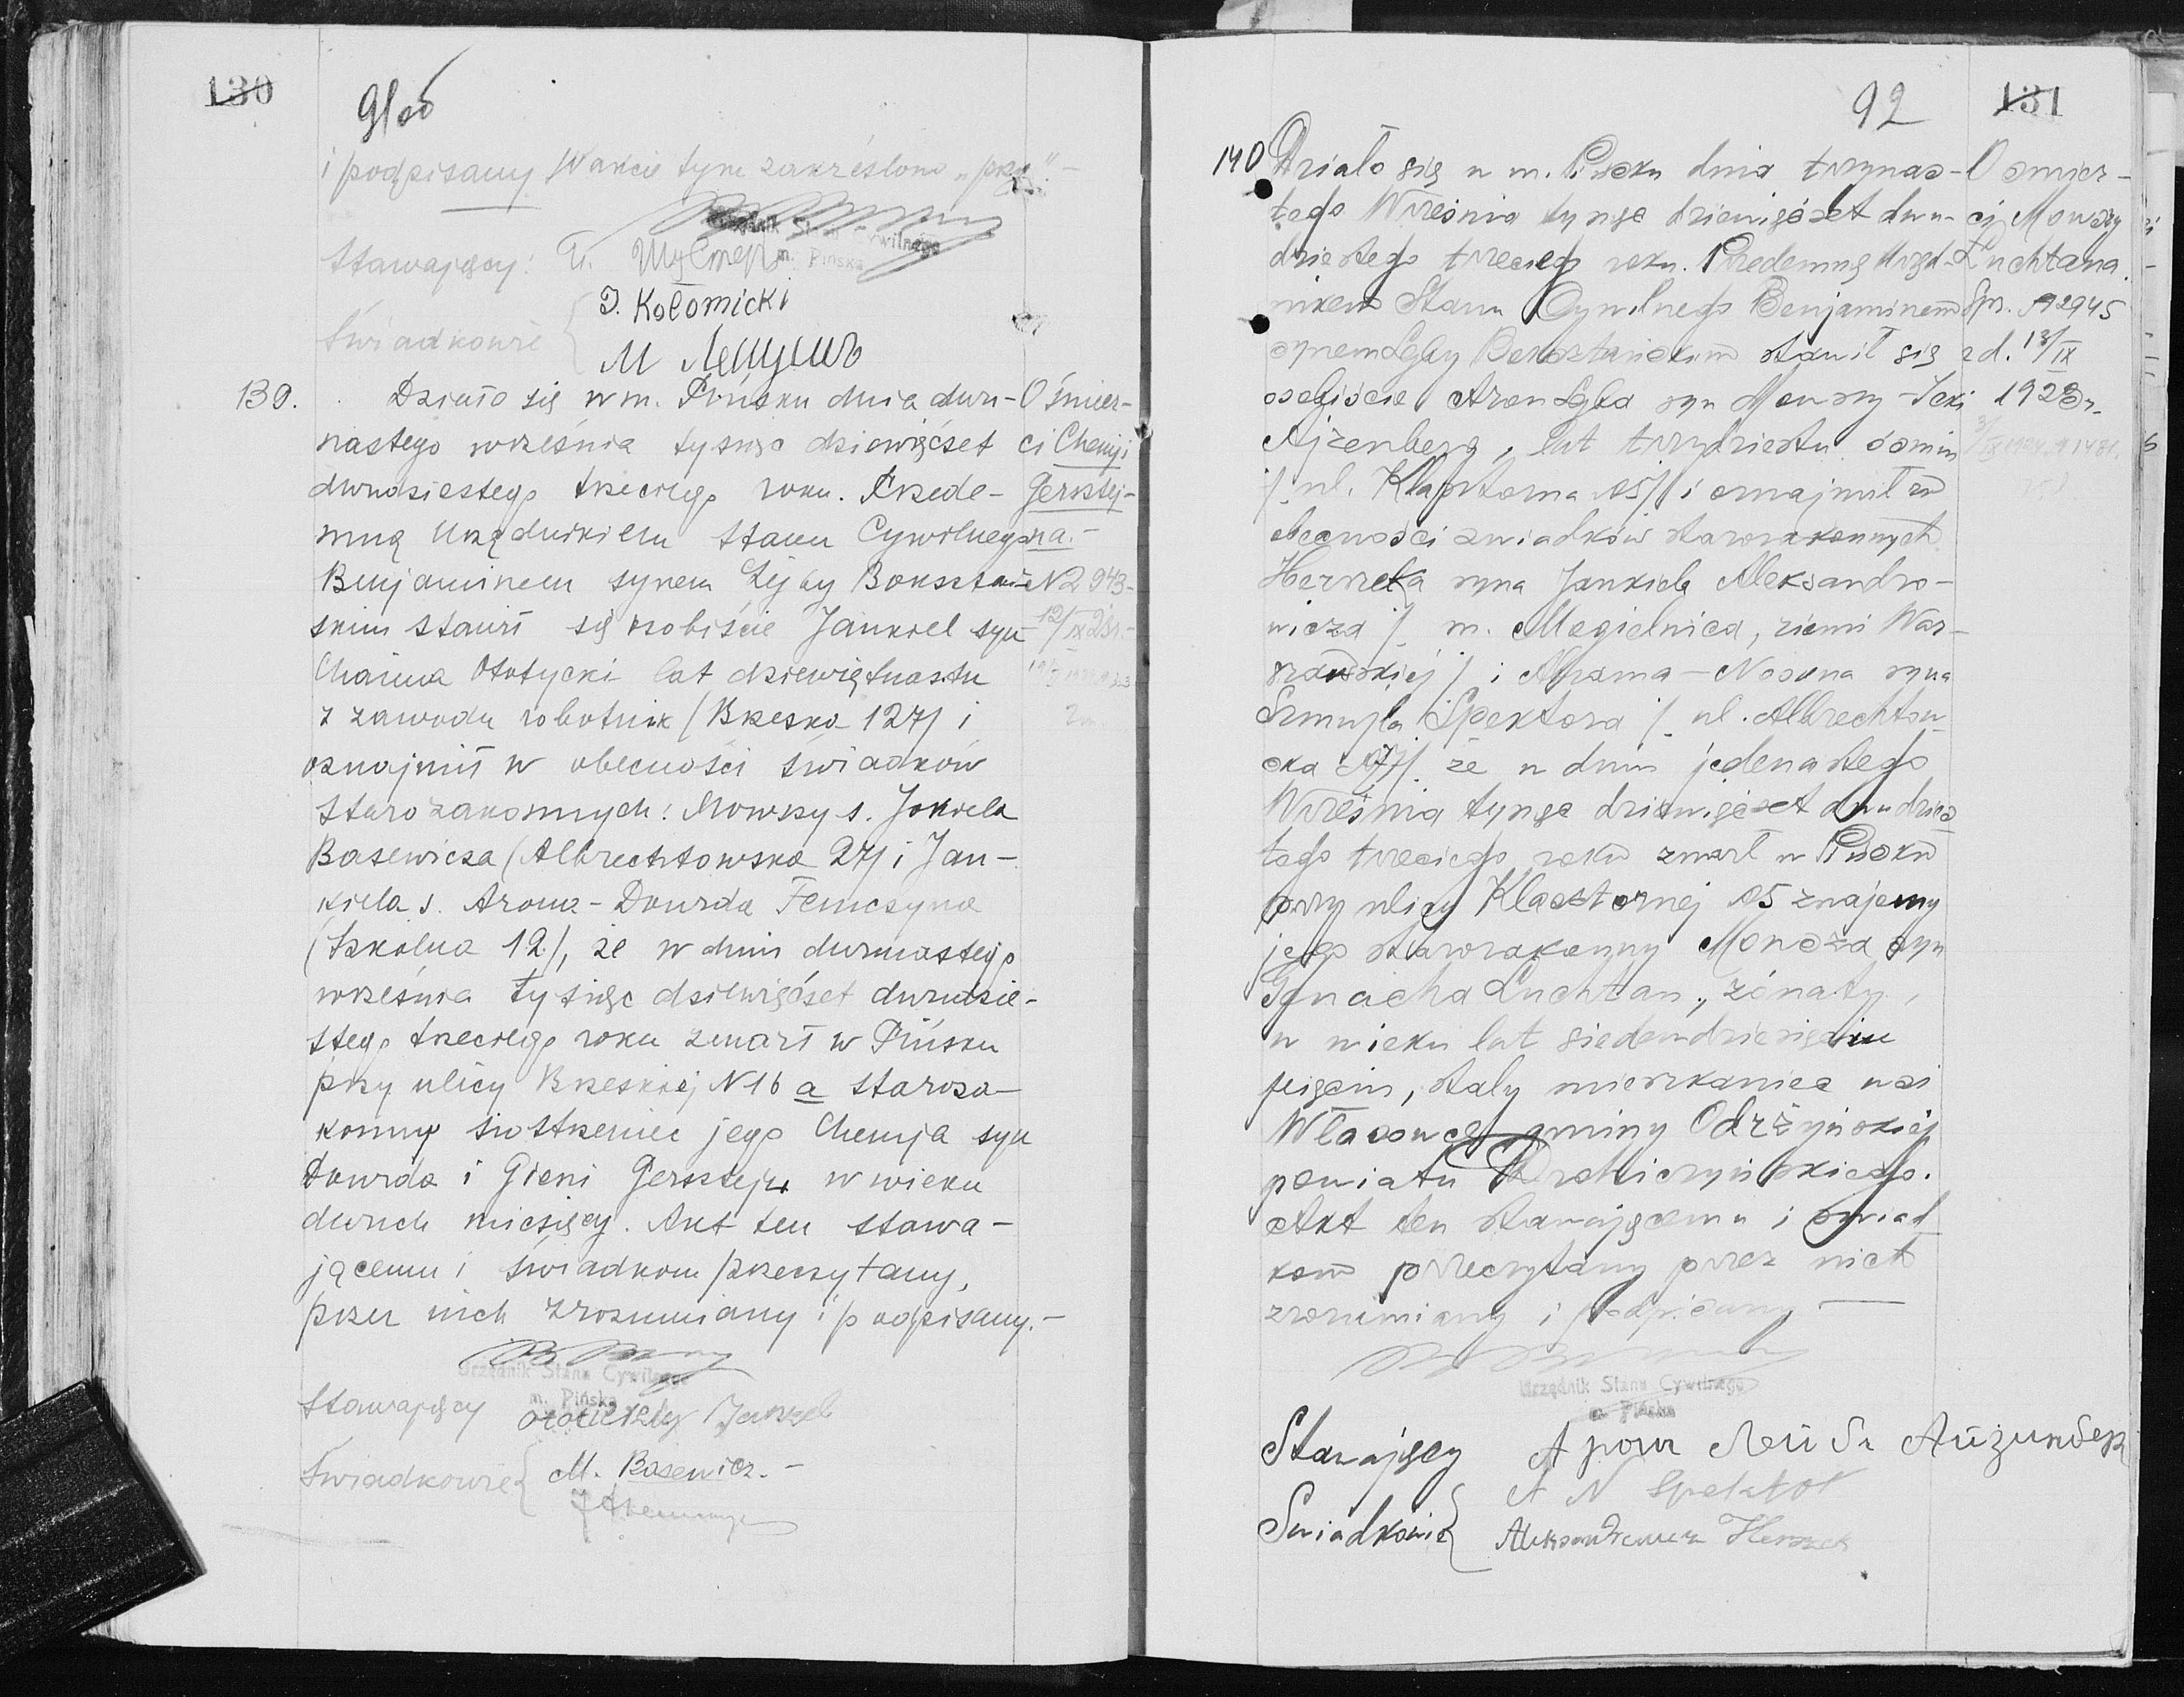 130
91об
i podpisany. W akcie tym zakreślono „przy".-
Urzędnik Stanu Cywilnego
m. Pińska
Stawający:
Świadkowie
J. Kołomicki
М Лещинъ
139. Działo się w m. Pińsku dnia dwu-
nastego września tysiąc dziewięćset
dwudziestego trzeciego roku. Przede-
mną Urzędnikiem Stanu Cywilnego
Benjaminem synem Lejby Boksztań-
skim stawił się osobiście Jankiel syn
Chaima Ototycki lat dziewiętnastu
z zawodu robotnik /Brzeska 127/ i
oznajmił w obecności świadków
starozakonnych: Mowszy s. Jokiela
Basewicza /Albrechtowska 27/ i Jan-
kiela s. Arona-Dowida Femczyna
/Szkolna 12/, że w dniu dwunastego
września tysiąc dziewięćset dwudzie-
stego trzeciego roku zmarł w Pińsku
przy ulicy Brzeskiej N 16 a staroza-
konny siostrzeniec jego Chemja syn
Dowida i Gieni Gersztejn w wieku
dwuch miesięcy. Akt ten stawa-
jącemu i świadkom przeczytany,
przez nich zrozumiany i podpisany.-
O śmier-
ci Chemji
Gersztej-
na.-
N 2943-
12/IX 23r.-
Urzędnik Stanu Cywilnego
m. Pińska
Stawający Jankel
Świadkowie { M. Basewicz.-
92
131
140 Działo się w m. Pińsku dnia trzynas-
tego Września tysiąc dziewięćset dwu-
dziestego trzeciego roku. Przedemną Urzęd-
nikem Stanu Cywilnego Benjaminem
synem Lejby Boksztańskim stawił się
osobiście Aron Lejba syn Mowszy-Icki
Ajzenberg, lat trzydziestu ośmiu
/ ul. Klasztorna №5/ i oznajmił w
obecności świadków starozakonnych
Herszka syna Jankiela Aleksandro-
wicza / m. Mogielnica, ziemi War-
szawskiej / i Abrama-Nosona syna
Szmujla Spektora / ul. Albrechtow-
ska №7/ że w dniu jedenastego
Września tysiąc dziewięćset dwudzies
tego trzeciego roku zmarł w Pińsku
przy ulicy Klasztornej №5 znajomy
jego starozakonny Mowsza syn
Gynacha Luchtan, żonaty,
w wieku lat siedemdziesięciu
pięciu, stały mieszkaniec wsi
Własowce gminy Odrżyńskiej
powiatu Drohiczyńskiego.
Akt ten stawającemu i świad
kom przeczytany przez nich
zrozumiany i podpisany
O śmier-
ci Mowszy
Luchtana.
Spr. №2945
z d. 13/IX
1923r.
Urzędnik Stanu Cywilnego
m. Pińska
Stawający Арон Лейба Айзинберг
Świadkowie { A N Spektor
Aleksandrowicz Herszek